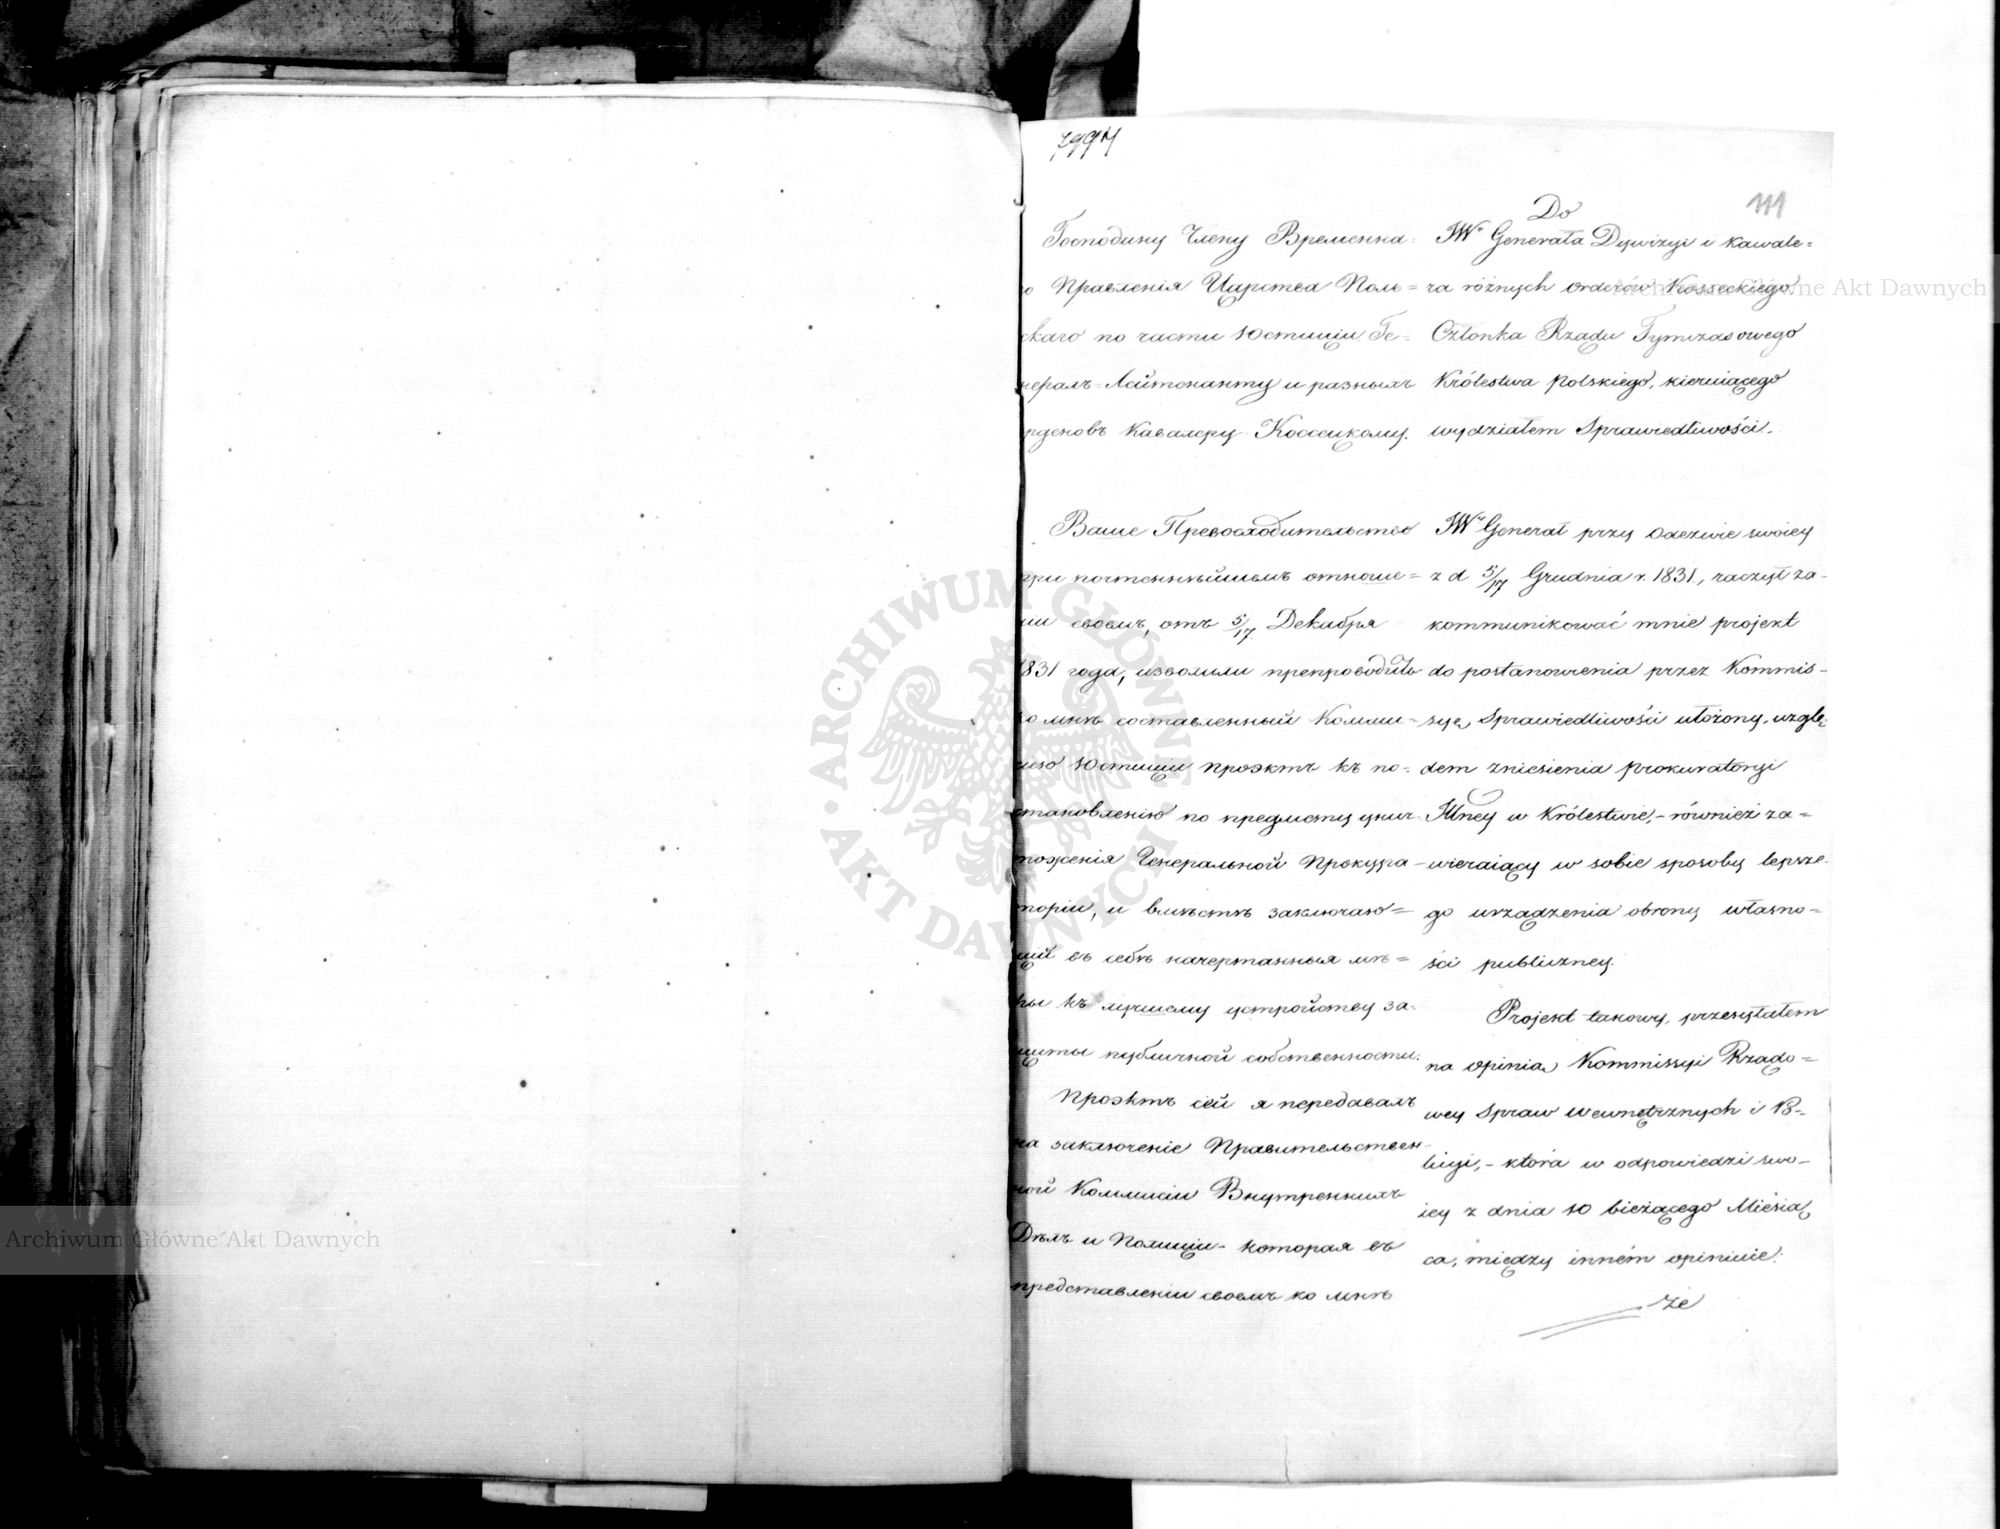 111
Господину Члену Временна-
го Правленія Царства Поль=
скаго по части Юстиціи Ге=
нералъ-Лейтенанту и разныхъ
орденовъ Кавалеру Коссецкому.
Ваше Превосходительство
при почтеннѣйшемъ отноше=
ніи своемъ, отъ 5/17 Декабря
1831 года, изволили препроводить
ко мнѣ составленный Комми=
сіею Юстиціи проэктъ къ по=
становленію по предмету унич-
тоженія Генеральной Прокура-
торіи, и вмѣстѣ заключаю=
щій въ себѣ начертанныя мѣ=
ры къ лучшему устройству за-
щиты публичной собственности.
Проэктъ сей я передавалъ
на заключеніе Правительствен-
ной Коммисіи Внутреннихъ
Дѣлъ и Полиціи - которая въ
представленіи своемъ ко мнѣ
Do
JWo Generała Dywizyi i Kawale=
ra różnych orderów Kosseckiego
Członka Rządu Tymczasowego
Królestwa Polskiego, kieruiącego
wydziałem Sprawiedliwości.
JWy Generał przy odezwie swoiey
z d 5/17 Grudnia r. 1831., raczył za-
kommunikować mnie projekt
do postanowienia przez Kommis-
syę Sprawiedliwości ułożony, wzglę-
dem zniesienia prokuratoryi
Jlney w Królestwie, - również za=
wieraiący w sobie sposoby lepsze-
go urządzenia obrony własno-
ści publiczney.
Projekt takowy, przesyłałem
na opinią Kommissyi Rządo=
wey Spraw Wewnętrznych i Po-
licyi, - która w odpowiedzi swo-
iey z dnia 10 bieżącego Miesią
ca, między inném opiniuie:
że
Archiwum Główne Akt Dawnych
Archiwum Główne Akt Dawnych
ARCHIWUM GŁÓWNE • AKT DAWNYCH •